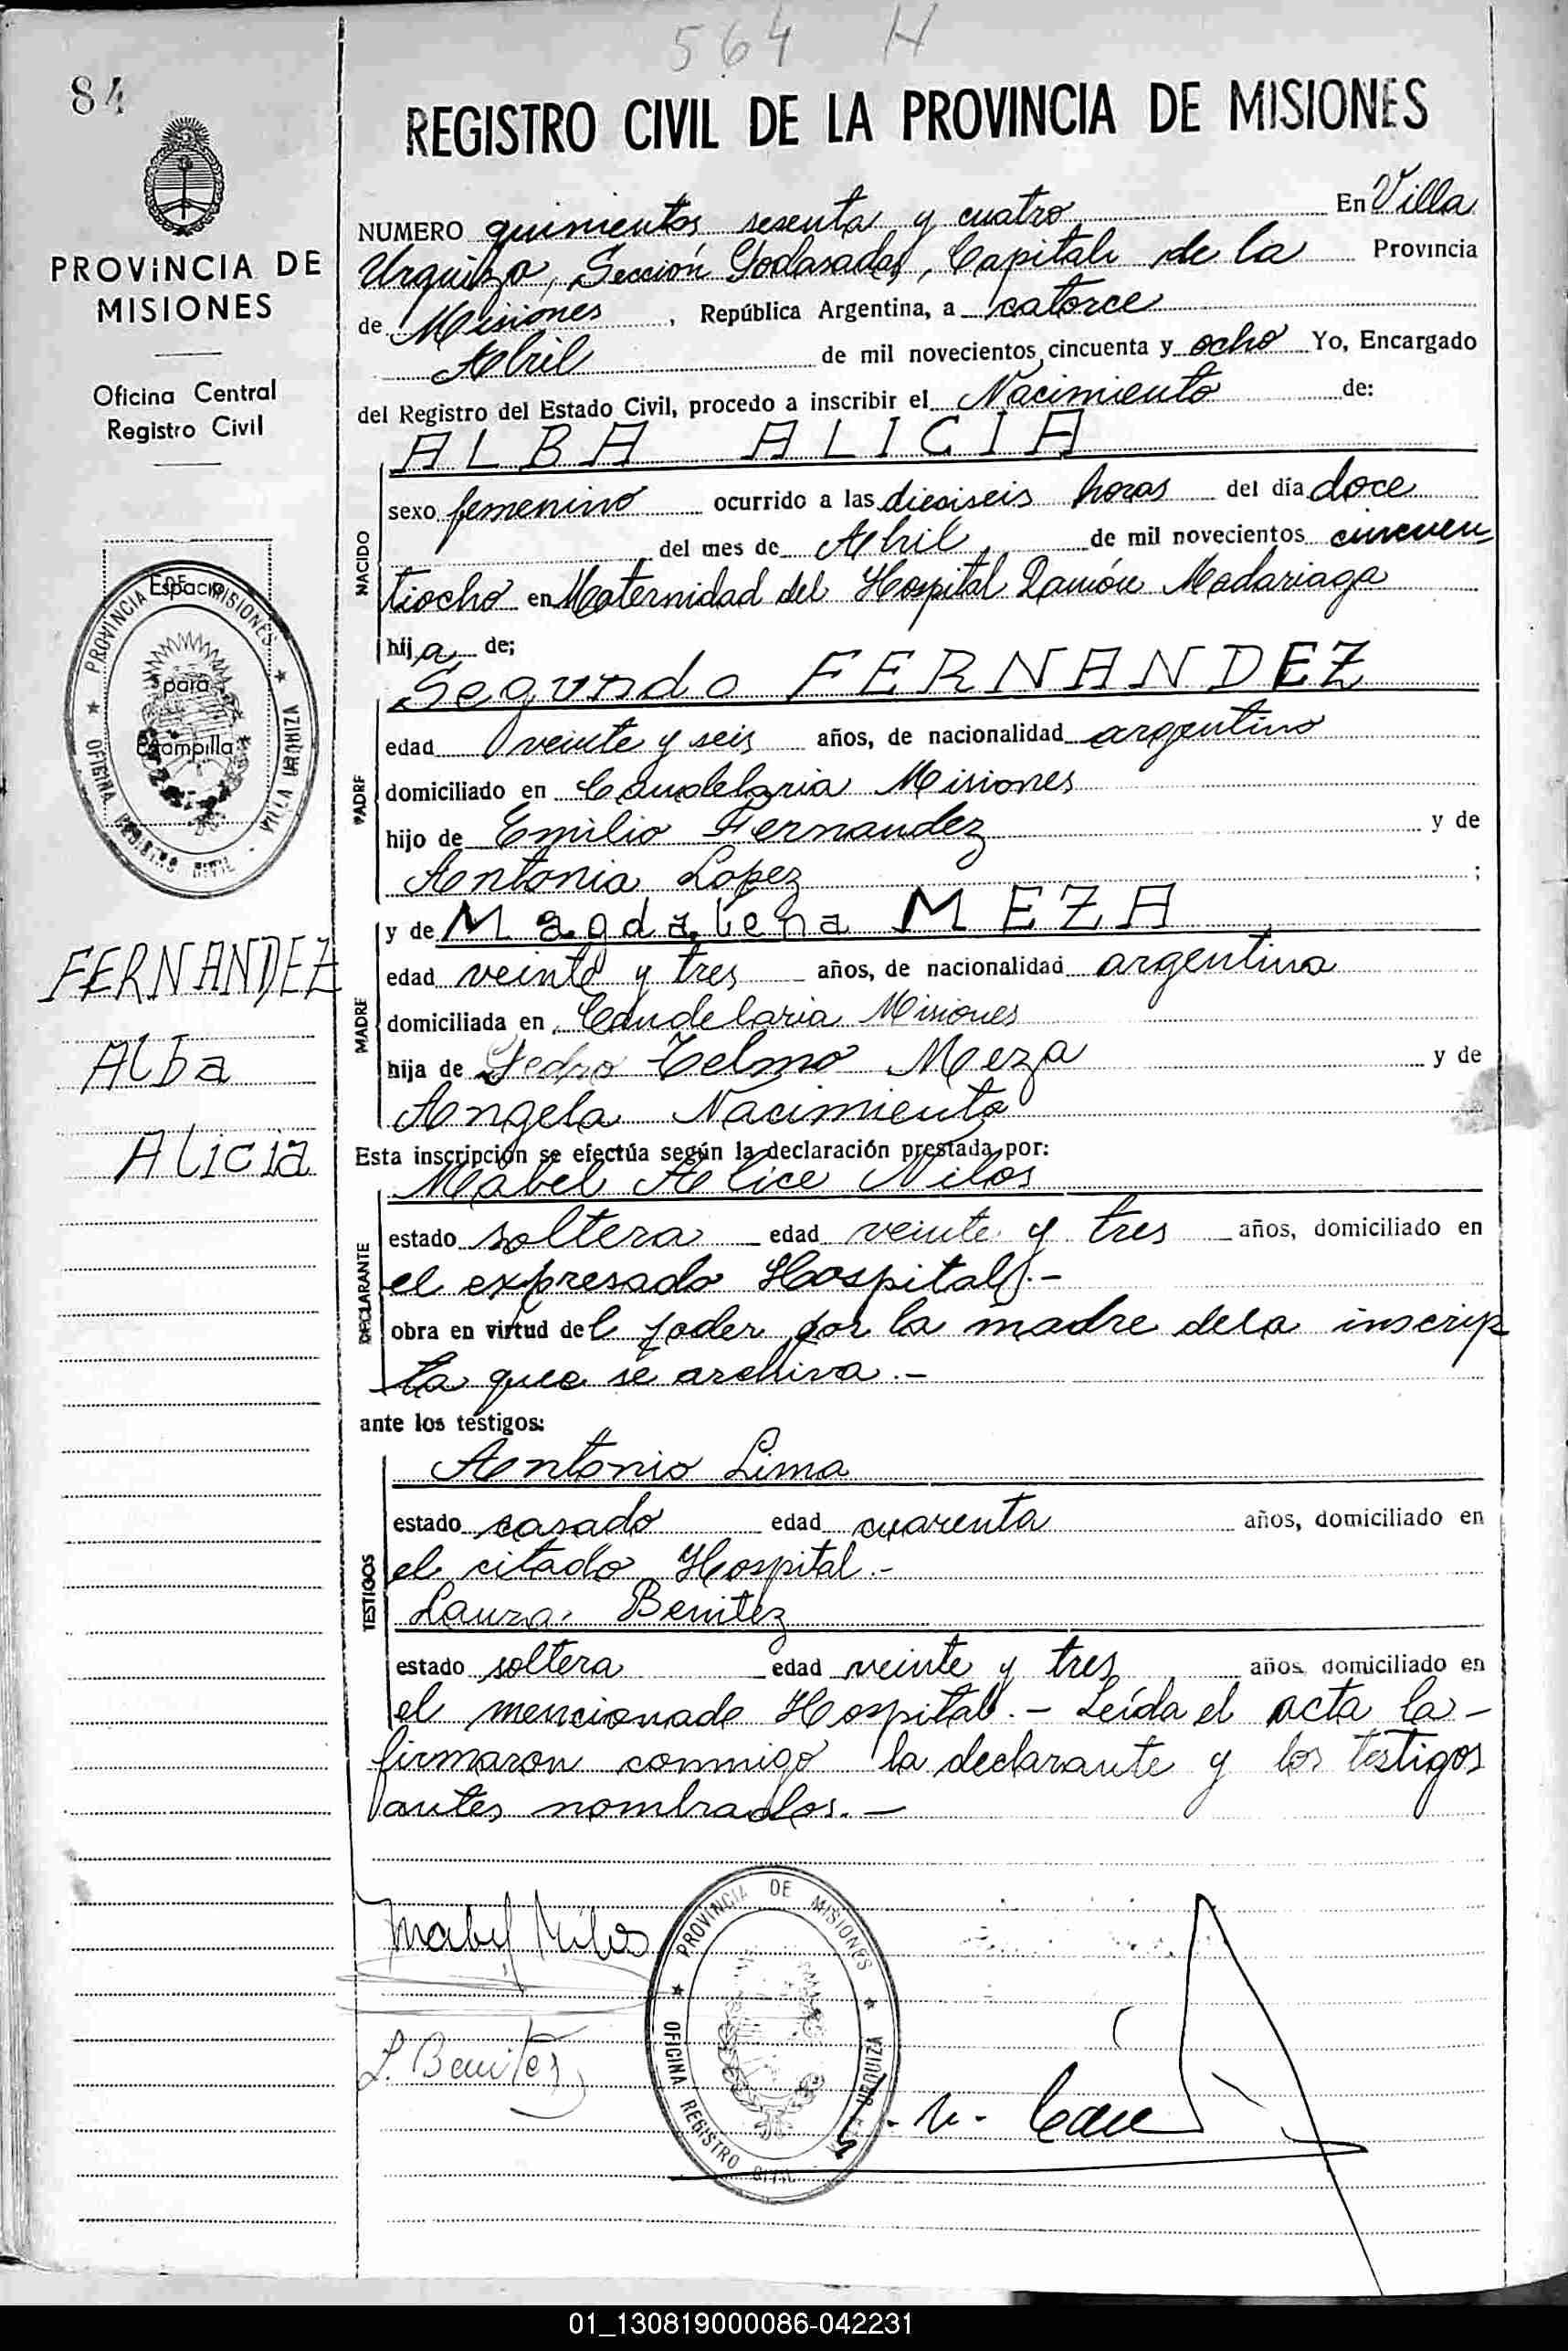 564 H
84
REGISTRO CIVIL DE LA PROVINCIA DE MISIONES
PROVINCIA DE
MISIONES
Oficina Central
Registro Civil
Espacio
para
Estampilla
PROVINCIA DE MISIONES
OFICINA REGISTRO CIVIL - VILLA URQUIZA
FERNANDEZ
Alba
Alicia
NUMERO quinientos sesenta y cuatro En Villa
Urquiza, Sección Capital de la Provincia
de Misiones, República Argentina, a catorce
Abril de mil novecientos cincuenta y ocho Yo, Encargado
del Registro del Estado Civil, procedo a inscribir el Nacimiento de:
NACIDO
ALBA ALICIA
sexo femenino ocurrido a las dieciseis horas del día doce
del mes de Abril de mil novecientos cincuen
tiocho en Maternidad del Hospital Ramón Madariaga
hija de;
PADRE
Segundo FERNANDEZ
edad veinte y seis años, de nacionalidad argentino
domiciliado en Candelaria Misiones
hijo de Emilio Fernandez y de
Antonia Lopez ;
MADRE
y de Magdalena MEZA
edad veinte y tres años, de nacionalidad argentina
domiciliada en Candelaria Misiones
hija de Pedro Telmo Meza y de
Angela Nacimiento
Esta inscripción se efectúa según la declaración prestada por:
DECLARANTE
Mabel Alice Nilos
estado soltera edad veinte y tres años, domiciliado en
el expresado Hospital.-
obra en virtud del poder por la madre dela inscrip
ta que se archiva.-
ante los testigos:
TESTIGOS
Antonio Lima
estado casado edad cuarenta años, domiciliado en
el citado Hospital.-
Laura Benitez
estado soltera edad veinte y tres años, domiciliado en
el mencionado Hospital.- Leída el acta la-
firmaron conmigo la declarante y los testigos
antes nombrados.-
Mabel Nilos
L. Benitez
PROVINCIA DE MISIONES
OFICINA REGISTRO CIVIL URQUIZA
01_130819000086-042231